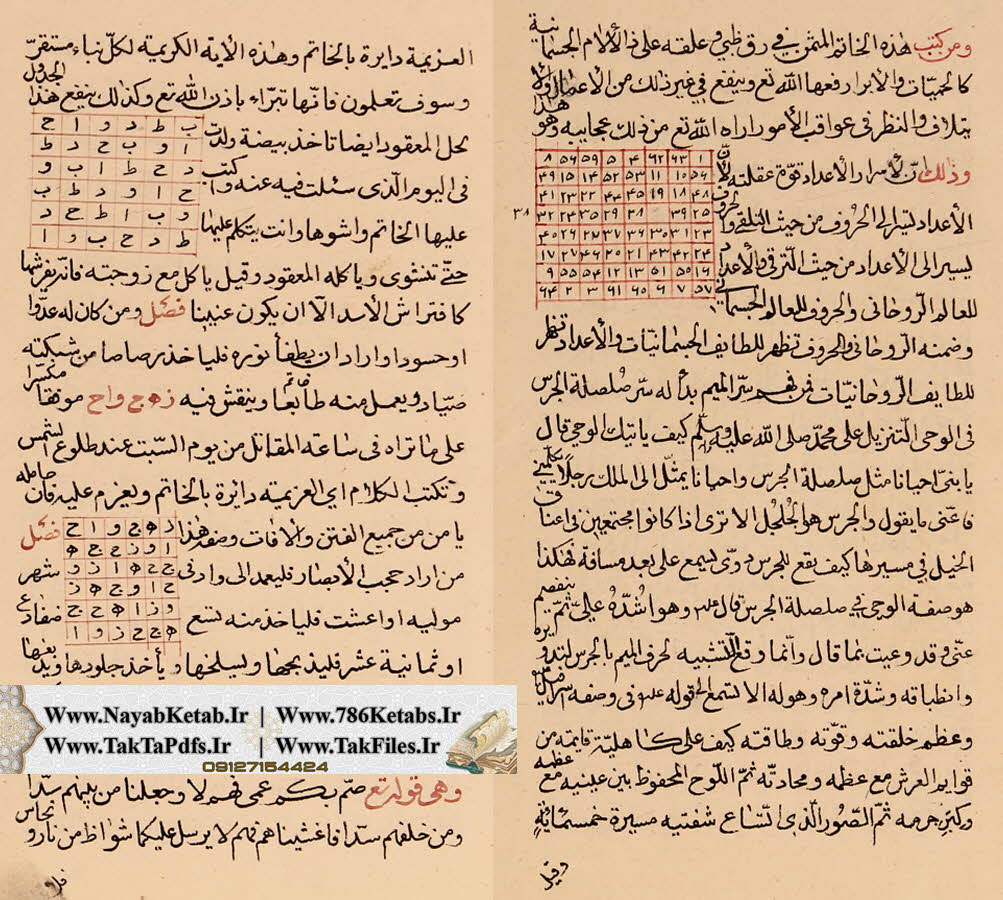 ومن كتب هذه الخاتم المثمن في رق ظبي وعلقه على ذي الالام الجسمانية
كالحميات والابرار رفعها الله تع وينفع في غير ذلك من الاعضال واذا هذا
بتلاف والنظر في عواقب الأمور اراه الله تع من ذلك عجايبه وهو
وذلك ان لاسرار الاعداد قوة عقلية لأن
الأعداد تشير الى الحروف من حيث التلقي والحروف
يسير الى الأعداد من حيث الترقي والأعداد
للعالم الروحاني والحروف للعالم الجسماني
٨ ٥٨ ٥٩ ٥ ٤ ٦٢ ٦٣ ١
٤٩ ١٥ ١٤ ٥٢ ٥٣ ١١ ١٠ ٥٦
٤١ ٢٣ ٢٢ ٤٤ ٤٥ ١٩ ١٨ ٤٨
٣٢ ٣٤ ٣٥ ٢٩ ٣٨ ٣٩ ٢٥
٣٨
٤٠ ٢٦ ٢٧ ٣٧ ٣٦ ٣٠ ٣١ ٣٣
١٧ ٤٧ ٤٦ ٢٠ ٢١ ٤٣ ٤٢ ٢٤
٩ ٥٥ ٥٤ ١٢ ١٣ ٥١ ٥٠ ١٦
٦٤ ٢ ٣ ٦١ ٦٠ ٦ ٧ ٥٧
وضمنه الروحاني والحروف تظهر للطايف الجسمانيات والأعداد تظهر
للطايف الروحانيات فمن فهم سر الميم بدا له سر صلصلة الجرس
في الوحي التنزيل على محمد صلى الله عليه وسلم كيف ياتيك الوحي قال
ياتيني احيانا مثل صلصلة الجرس واحيانا يمثل الي الملك رجلا يكلمني
فاعي ما يقول والجرس هو الجلجل الا ترى اذا كانوا مجتمعين في اعناق
الخيل في مسيرها كيف يقع للجرس دوي يسمع على بعد مسافة فهكذا
هو صفة الوحي في صلصلة الجرس قال وهو اشده علي ثم ينفصم
عني وقد وعيت بما قال وانما وقع التشبيه لحرف الميم بالجرس لتدويره
وانطباقه وشدة امره وهوله الا تستمع الى قوله في وصفه اسرافيل
وعظم خلقته وقوته وطاقته كيف على كاهليه قايمة من
قوايم العرش مع عظمه ومحاذته ثم اللوح المحفوظ بين عينيه مع عظمه
وكبر جرمه ثم الصور الذي اتساع شفتيه مسيرة خمسمائة
وقيل
العزيمة دايرة بالخاتم وهذه الاية الكريمة لكل نباء مستقر
وسوف تعلمون فانها تبراء باذن الله تع وكذلك ينفع هذا الجدول
لحل المعقود ايضا تاخذ بيضة ولدت
في اليوم الذي سئلت فيه عنه واكتب
عليها الخاتم واشوها وانت يتكلم عليها
ب ط د و ا ح
ا و ب ح د ط
د ح ط ا ب و
ح ا و د ط ب
و ب ا ط ح د
ط د ح ب و ا
حتى تنشوى وياكله المعقود وقيل ياكل مع زوجته فانه يفرشها
كافتراش الأسد الا ان يكون عنينا فصل ومن كان له عدوا
او حسودا واراد ان يطفأ نوره فلياخذ رصاصا من شبكة
صياد ويعمل منه طابعا وينقش فيه زهج واح موفقا مكسرا
على ما تراه في ساعة المقاتل من يوم السبت عند طلوع الشمس
وتكتب الكلام اي العزيمة دايرة بالخاتم ويعزم عليه فان حامله
يامن من جميع الفتن والافات وصفة هذا فصل
من اراد حجب الأبصار فليعمد الى واد في شهر
موليه او اعشت فلياخذ منه تسع ضفادع
ز ه ج و ا ح
ا و ز ح ج ه
ج ح ه ا ز و
ح ا و ج ه ز
و ز ا ه ح ج
ه ج ح ز و ا
او ثمانية عشر فليذبحها ويسلخها ويأخذ جلودها ويدبغها
www.NayabKetab.Ir | www.786Ketabs.Ir
www.TakTaPdfs.Ir | www.TakFiles.Ir
09127154424
وهي قوله تع صم بكم عمي فهم لا وجعلنا من بينهم سدا
ومن خلفهم سدا فاغشيناهم فهم لا يرسل عليكما شواظ من نار ونحاس